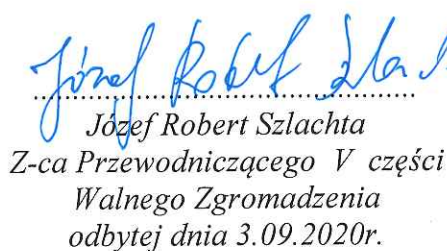 Józef Robert Szla
..........................................................
Józef Robert Szlachta
Z-ca Przewodniczącego V części
Walnego Zgromadzenia
odbytej dnia 3.09.2020r.